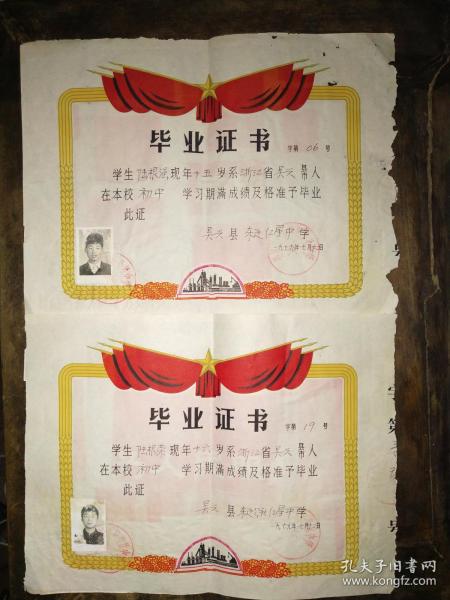 毕业证书
字第 06 号
学生陆根 现年十五岁系浙江省吴兴县人
在本校初中 学习期满成绩及格准予毕业
此证
吴兴县 东迁红星中学
一九七六年七月 日
毕业证书
字第 19 号
学生陆根荣现年十六岁系浙江省吴兴县人
在本校初中 学习期满成绩及格准予毕业
此证
吴兴县 东迁红星中学
一九七六年七月 日
字
第
号
孔夫子旧书网
www.kongfz.com